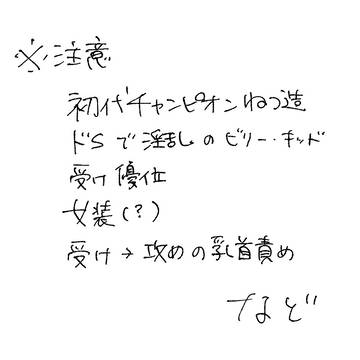 ※注意
初代チャンピオンねつ造
ドSで淫乱のビリー・キッド
受け優位
女装(?)
受け→攻めの乳首責め
など